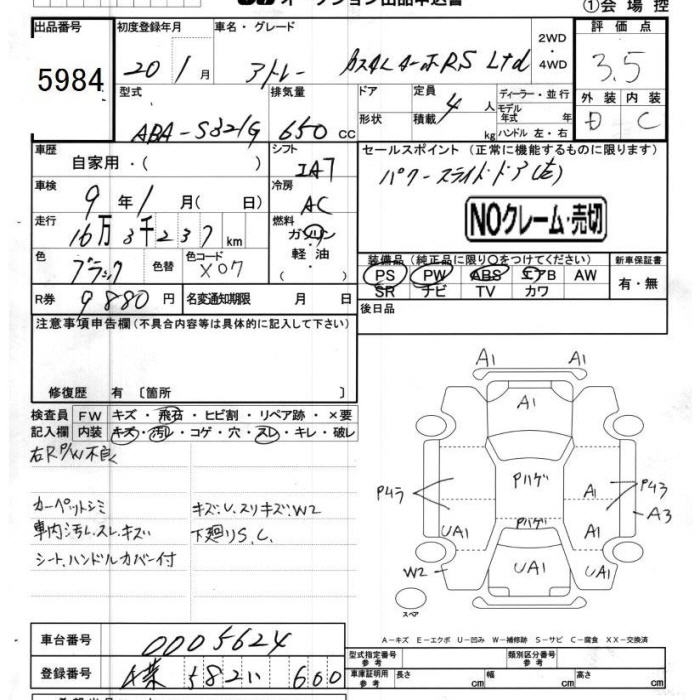 オークション出品申込書
①会場控
出品番号
5984
初度登録年月
20 / 1 月
車名・グレード
アトレー カスタムターボRS Ltd
2WD
4WD
評価点
3.5
型式
ABA-S321G
排気量
650 cc
ドア
形状
定員 4 人
積載 kg
ディーラー・並行
モデル年式 年
ハンドル 左・右
外装 内装
D C
車歴
自家用・( )
シフト
IA7
セールスポイント (正常に機能するものに限ります)
パワースライドドア(左)
車検
9 年 1 月( 日)
冷房
AC
NOクレーム・売切
走行
16万3千237 km
燃料
ガソリン
軽油
・( )
色
ブラック
色替
色コード
X07
装備品 (純正品に限り○をつけてください)
PS PW ABS エアB AW
SR ナビ TV カワ
新車保証書
有・無
R券
9880 円
名変通知期限 月 日
後日品
注意事項申告欄(不具合内容等は具体的に記入して下さい)
修復歴 有 〔箇所 〕
検査員記入欄
FW キズ・飛石・ヒビ割・リペア跡・×要
内装 キズ・汚レ・コゲ・穴・スレ・キレ・破レ
右RP/W不良
カーペットシミ
キズ.U.スリキズ.W2
車内汚レ.スレ.キズ
下廻りS.C.
シート.ハンドルカバー付
A1
A1
A1
Pハゲ
P4ラ
A1
P43
A3
UA1
Pハゲ
A1
W2
UA1
UA1
スペア
A-キズ E-エクボ U-凹み W-補修跡 S-サビ C-腐食 XX-交換済
車台番号
0005624
型式指定番号 参考
類別区分番号 参考
登録番号
582い 600
車庫証明用 参考
長さ cm
幅 cm
高さ cm